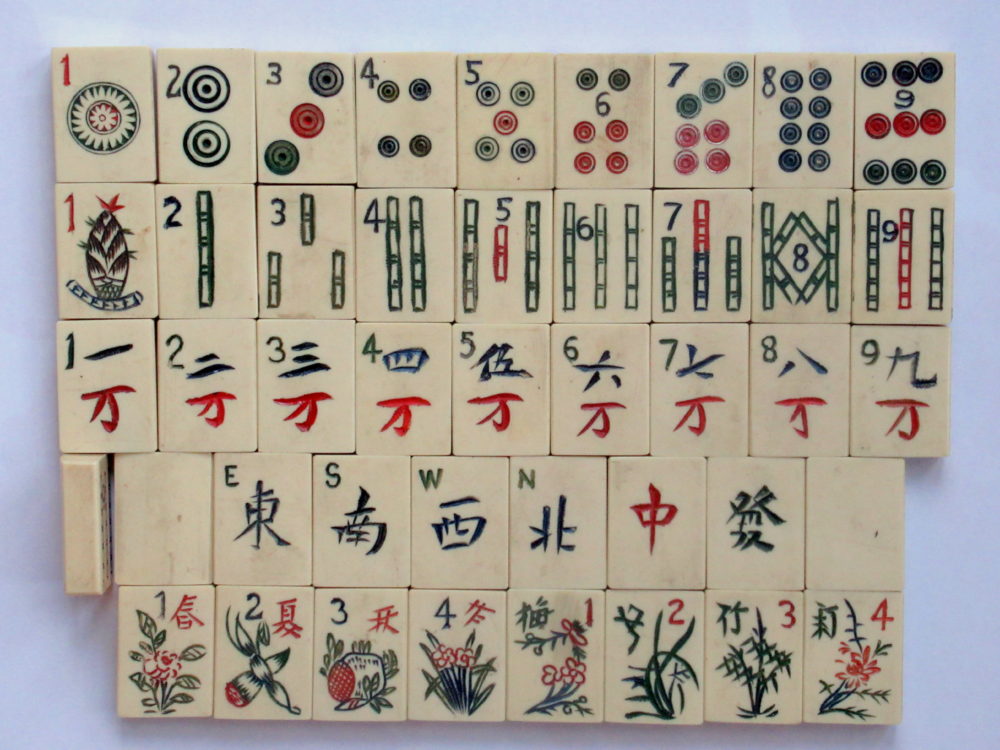 1 2 3 4 5 6 7 8 9
1 2 3 4 5 6 7 8 9
1 一 2 二 3 三 4 四 5 伍 6 六 7 七 8 八 9 九
万 万 万 万 万 万 万 万 万
E 東 S 南 W 西 N 北 中 發
1 春 2 夏 3 4 冬 梅 1 2 竹 3 4